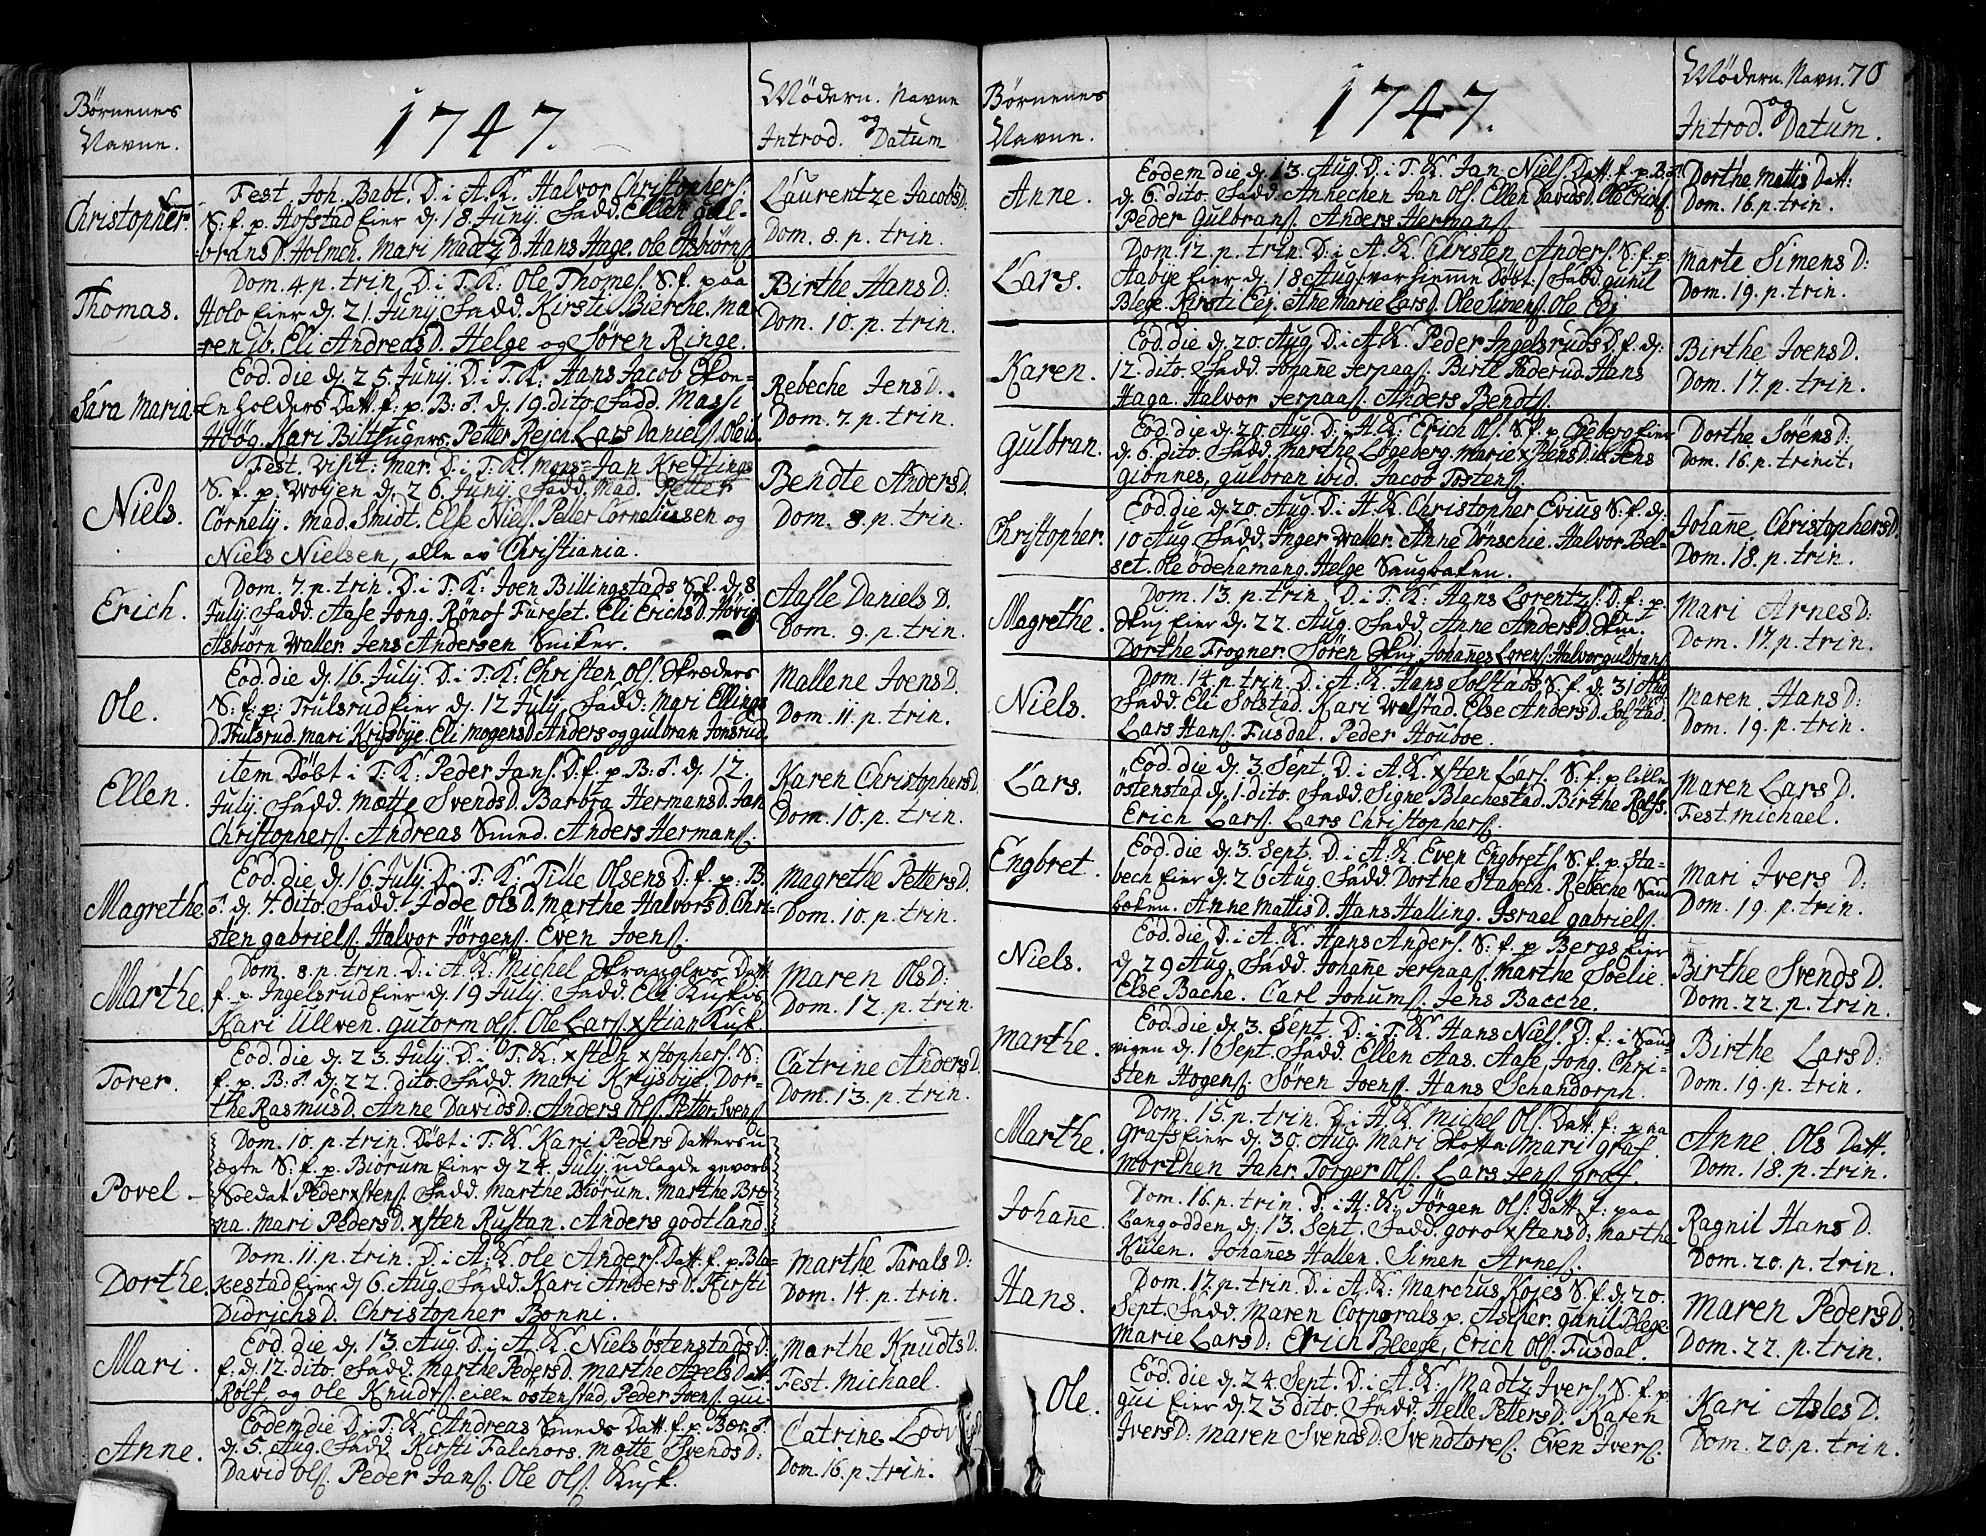 Børnenes
Navne.
1747.
Mödern. Navne
og
Introd. Datum
Christopher.
Fest. Joh. Babt. D. i A. K. Halvor Christophers.
S. f. p. Hofstad Eier dj 18 Junij. Fadd. Ellen Gul-
brans D. Holmen. Mari Madtz D. Hans Hage. Ole Asbiørns.
Laurentze Jacobs D.
Dom. 8. p. trin.
Thomas.
Dom. 4. p. trin. D. i T. K: Ole Thomes. S. f. paa
Holo Eier dj 21 Junij Fadd. Kirsti Bierche. Ma-
ren ib. Eli Andreas D. Helge og Søren Ringe.
Birthe Hans D:
Dom. 10. p. trin.
Sara Maria
Eod. die dj 25 Junij. D. i T. K: Hans Jacob
holders Datt. f. p. B: S. dj 19. dito. Fadd. Massi
Höög. Kari Petter Rejch. Lars Daniels.
Rebeche Jens D.
Dom. 7. p. trin.
Niels.
Fest. Visit: Mar. D. i T. K. Mons. Jan Kreftings
S. f. p. Wøyen dj 26 Junij. Fadd. Mad. Petter
Cornelij. Mad. Smidt. Else Niels. Petter Corneliussen og
Niels Nielsen, alle av Christiania.
Bendte Anders D.
Dom. 8. p. trin.
Erich.
Dom. 7. p. trin. D. i T. K: Joen Billingstads S. f. dj 8
July. Fadd. Aase Jong. Ronof Fureset. Eli Erichs D. Hövig.
Asbiørn Waller. Jens Andersen Sniker.
Aasle Daniels D.
Dom. 9. p. trin.
Ole.
Eod. die dj 16 July. D. i T. K: Christen Ols. Skræders
S. f. p: Trulsrud Eier dj 12 July. Fadd: Mari Ellings
D. Trulsrud. Mari Krysbye. Eli Mogens D. Anders og Gulbran Jonsrud.
Mallene Joens D.
Dom. 11. p. trin.
Ellen.
item Döbt i T. K: Peder Jans. D. f. p. B: S. dj 12
July. Fadd. Mætte Svends D. Barbra Hermans D. Jan
Christophers. Andreas Smed. Anders Hermans.
Karen Christophers D.
Dom. 10. p. trin.
Magrethe
Eod. die dj 16 July. D. i T. K: Tille Olsens D. f. p: B.
S. dj 7. dito. Fadd. Idde Ols D. Marthe Halvors D. Chri-
sten Gabriels. Halvor Jörgens. Even Joens.
Magrethe Petters D.
Dom. 10. p. trin.
Marthe.
Dom. 8. p. trin. D. i A. K. Michel Skrangles Datt.
f. p. Ingelsrud Eier dj 19 July. Fadd. Eli Kuskes
Kari Ullven. Gutorm Ols. Ole Lars. xstian Kusk
Maren Ols D:
Dom. 12. p. trin.
Torer.
Eod. die dj 23 July. D. i T. K: xsten xstophers. S:
f. p. B: S. dj 22. dito. Fadd. Mari Krysbye. Dor-
the Rasmus D. Anne Davids D: Anders Ols. Petter Svens.
Catrine Anders D.
Dom. 13. p. trin.
Povel -
Dom. 10. p. trin. Döbt i T. K. Kari Peders Datters u
ægte S: f. p. Biörum Eier dj 24 July. udlagde gevorb
Soldat Peder xstens. Fadd. Marthe Biörum. Marthe Bre-
ma. Mari Peders D. xsten Rustan. Anders Godtland.
Dorthe.
Dom. 11. p. trin. D. i A. K. Ole Anders. Datt. f. p Bla-
kestad Eier dj 6 Aug. Fadd. Kari Anders D. Kirsti
Didrichs D. Christopher Bonni.
Marthe Tarals D:
Dom. 14. p. trin.
Mari.
Eod. die dj 13. Aug. D. i A. K. Niels Östenstads D.
f. dj 12. dito. Fadd. Marthe Peders D. Marthe Axels Datt.
Rolf og Ole Knuds. Östenstad. Peder Joens. Gui
Marthe Knudts D.
Fest. Michael.
Anne.
Eodem die D. i T. K. Andreas Smeds Datt. f. p. Bær. S.
dj 5. Aug. Fadd. Kirsti Falchors. Mætte Svends D:
David Ols. Peder Jans. Ole Ols. Kusk.
Catrine
Dom. 16. p. trin.
Børnenes
Navne.
1747.
Mödern. Navn. 70
og
Introd. Datum.
Anne.
Eodem die dj 13. Aug. D. i T. K. Jan Niels. Datt. f. p. B. S.
dj 6. dito. Fadd. Annechen Jan Ols. Ellen Davids D. Ole Erichs.
Peder Gulbrans. Anders Hermans.
Dorthe Mattis Datt:
Dom. 16. p. trin.
Lars.
Dom. 12. p. trin. D: i A. K. Christen Anders. S. f. p
Aabye Eier dj 18 Aug. var hieme Döbt. Fadd. Gunil
Blege. Kirsti Eej. Ane Marie Lars D. Ole Simens. Ole Eej
Marte Simens D:
Dom. 19. p. trin.
Karen.
Eod. die dj. 20. Aug. D. i A. K. Peder Ingelsruds D. f. dj:
12. dito. Fadd. Johane Jerpaas. Birte Haderud. Hans
Haga. Halvor Jerpaas. Anders Bendts.
Birthe Joens D.
Dom. 17. p. trin.
Gulbran.
Eod. die dj 20. Aug. D. i A. K: Erich Ols. S. f. p Eier
dj 6. dito. Fadd. Marthe Løgeberg. Marie xstens D. ib. Jens
Gionnes, Gulbran ibid. Jacob Tostens.
Dorthe Sørens D:
Dom. 16. p. trinit.
Christopher.
Eod. die dj. 20. Aug. D. i A. K. Christopher Evius S. f. dj.
10 Aug. Fadd. Inger Waller. Anne Dönschie. Halvor Bel-
set. Ole Ödehamang. Helge Saugbaken.
Johane Christophers D.
Dom. 18. p. trin.
Magrethe.
Dom. 13. p. trin. D. i T. K: Hans Lorentzs. D: f. p.
Skuj Eier dj. 22 Aug. Fadd. Anne Anders D. Skui.
Dorthe Frogner. Søren Skuj. Johannes Lorens. Halvor Gulbrans.
Mari Arnes D:
Dom. 17. p. trin.
Niels.
Dom. 14. p. trin. D. i A. K. Hans Solstads S. f. dj. 31 Aug.
Fadd. Eli Solstad. Kari Wolstad. Else Anders D. Solstad.
Lars Hans. Fusdal. Peder Houboe.
Maren. Hans D:
Dom. 19. p. trin.
Lars.
Eod. die dj. 3. Sept. D. i A. K. xsten Lars. S. f. p lille
Östenstad dj. 1. dito. Fadd. Signe Blachestad. Birthe Rolfs.
Erich Lars. Lars Christophers.
Maren Lars D.
Fest. Michael.
Engbret.
Eod. die dj. 3. Sept. D. i A. K. Even Engbrets. S. f. p. Sta-
bech Eier dj. 26 Aug. Fadd. Dorthe Stabech. Rebeche Sand
baken. Anne Mattis D. Hans Halling. Israel Gabriels.
Mari Ivers D:
Dom. 19. p. trin.
Niels.
Eod. die. D. i A. K. Hans Anders. S: f. p Bergs Eier
dj 29 Aug. Fadd. Johane Jerpaas. Marthe Soelie.
Else Bache. Carl Johums. Jens Bacche.
Birthe Svends D.
Dom. 22. p. trin.
Marthe.
Eod. die dj. 3. Sept. D. i T. K. Hans Niels. D: f. i Sand
vigen dj. 1 Sept. Fadd. Ellen Aas. Aase Jong. Chri-
sten Hogens. Søren Joens. Hans Schandorph.
Birthe Lars D:
Dom. 19. p. trin.
Marthe.
Dom. 15. p. trin. D. i A. K. Michel Ols. Datt. f. paa
Grafs Eier dj. 30. Aug Mari Skotta. Mari Graf.
Morthen Jahr. Torger Ols. Lars Jens. Graf.
Anne. Ols Datt.
Dom. 18. p. trin.
Johane.
Dom. 16. p. trin. D. i A. K. Jörgen Ols. Datt. f. paa
Langodden dj. 13. Sept. Fadd. Goro xstens D. Marthe
Kulen. Johanes Hallen. Simen Arnes.
Ragnil Hans D.
Dom. 20. p. trin.
Hans.
Dom. 17. p. trin. D. i A. K: Marchus Kojes S. f. dj. 20.
Sept. Fadd. Maren Corporals p. Ascher. Gunil Blege.
Marie Lars D: Erich Bleege, Erich Ols. Fusdal.
Maren Peders D.
Dom. 22. p. trin.
Ole.
Eod. die dj. 24 Sept. D. i A. K. Madtz Ivers. S. f. p
Gui Eier dj. 23 dito. Fadd. Helle Petters D. Karen
Ivers D: Maren Svends D: Svend Tores. Even Ivers.
Kari Asles D.
Dom. 20. p. trin.